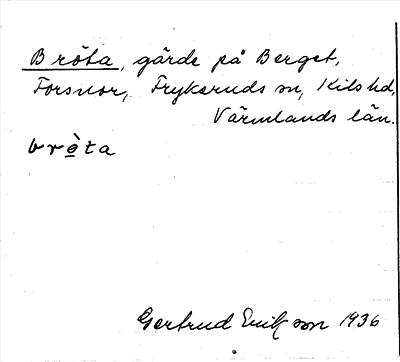 Bröta, gärde på Berget,
Forsnor, Frykeruds sn, Kils hd,
Värmlands län.
brö̀ta
Gertrud Eriksson 1936